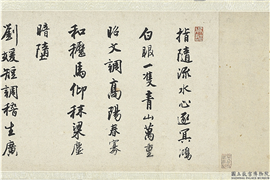 指隨流水心逐冥鴻
白眼一雙青山萬疊
昭文調高陽春寡
和櫪馬仰秣梁塵
暗墮
劉媛短調稽生廣
國立故宮博物院